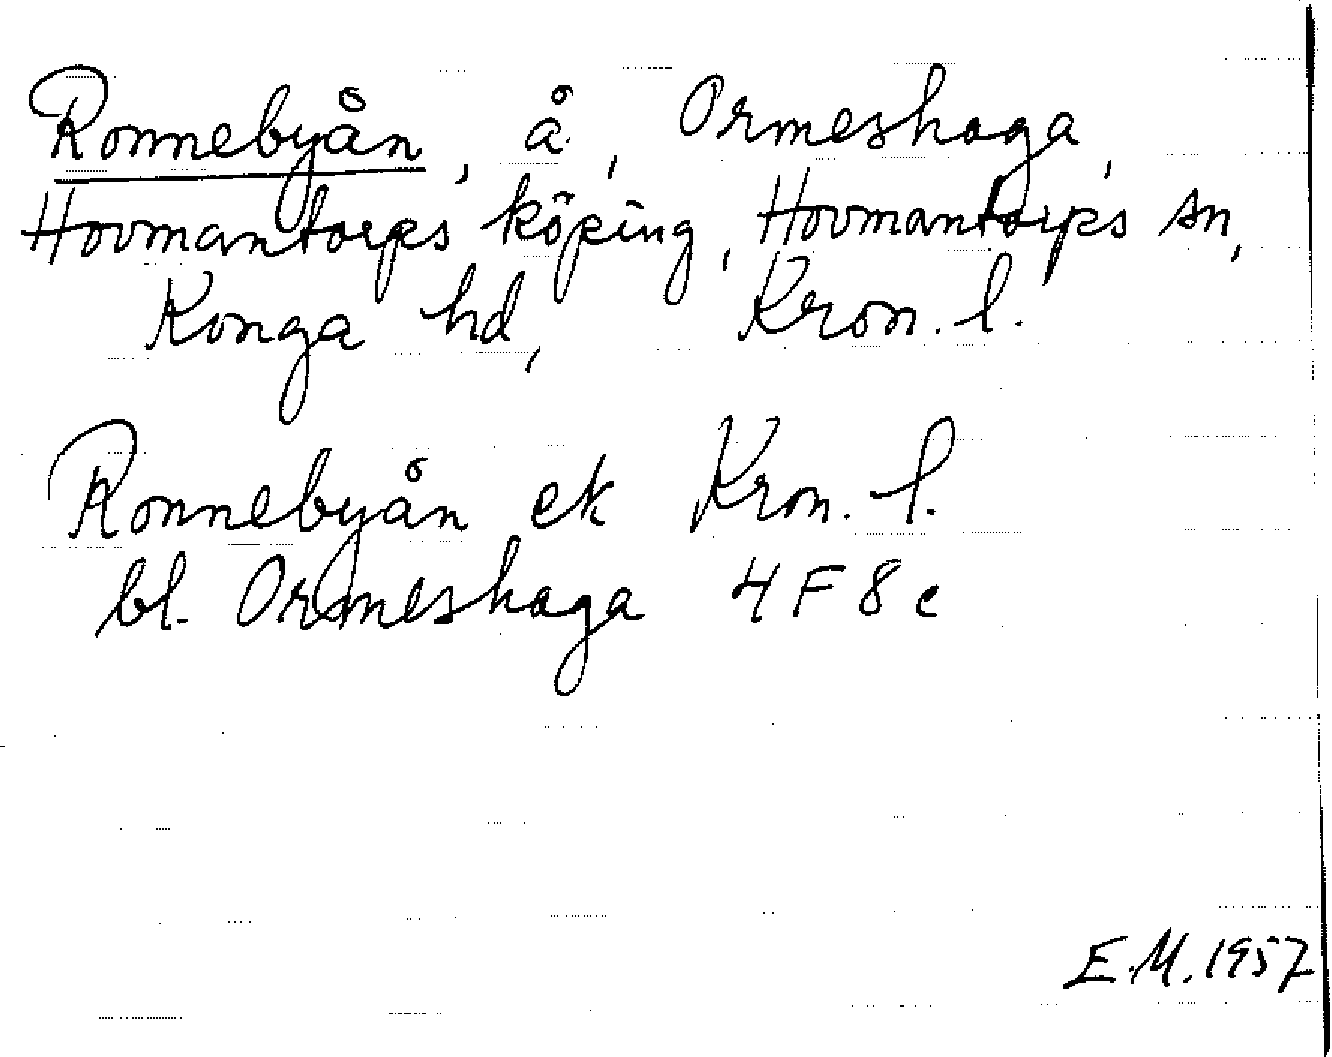 Ronnebyån, å, Ormeshaga,
Hovmantorps köping, Hovmantorps sn,
Konga hd, Kron. l.
Ronnebyån ek Kron. l.
bl. Ormeshaga 4 F 8 e
E.M. 1957